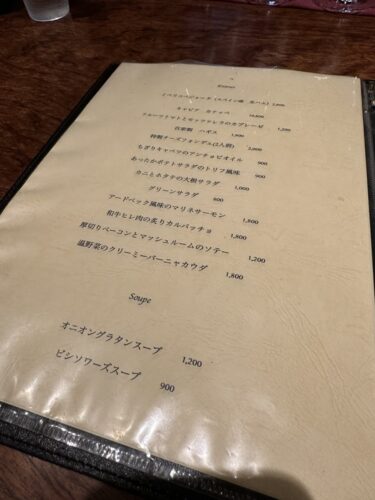 イベリコベジョータ（スペイン産 生ハム）
キャビア カナッペ
フルーツトマトとモッツァレラのカプレーゼ 1,200
自家製 ハギス 1,500
特製チーズフォンデュ(2人前) 2,000
ちぎりキャベツのアンチョビオイル 900
あったかポテトサラダのトリフ風味 900
カニとホタテの大根サラダ 1,000
グリーンサラダ 800
アードベック風味のマリネサーモン 1,800
和牛ヒレ肉の炙りカルパッチョ 1,800
厚切りベーコンとマッシュルームのソテー 1,200
温野菜のクリーミーバーニャカウダ 1,800
Soupe
オニオングラタンスープ 1,200
ビシソワーズスープ 900